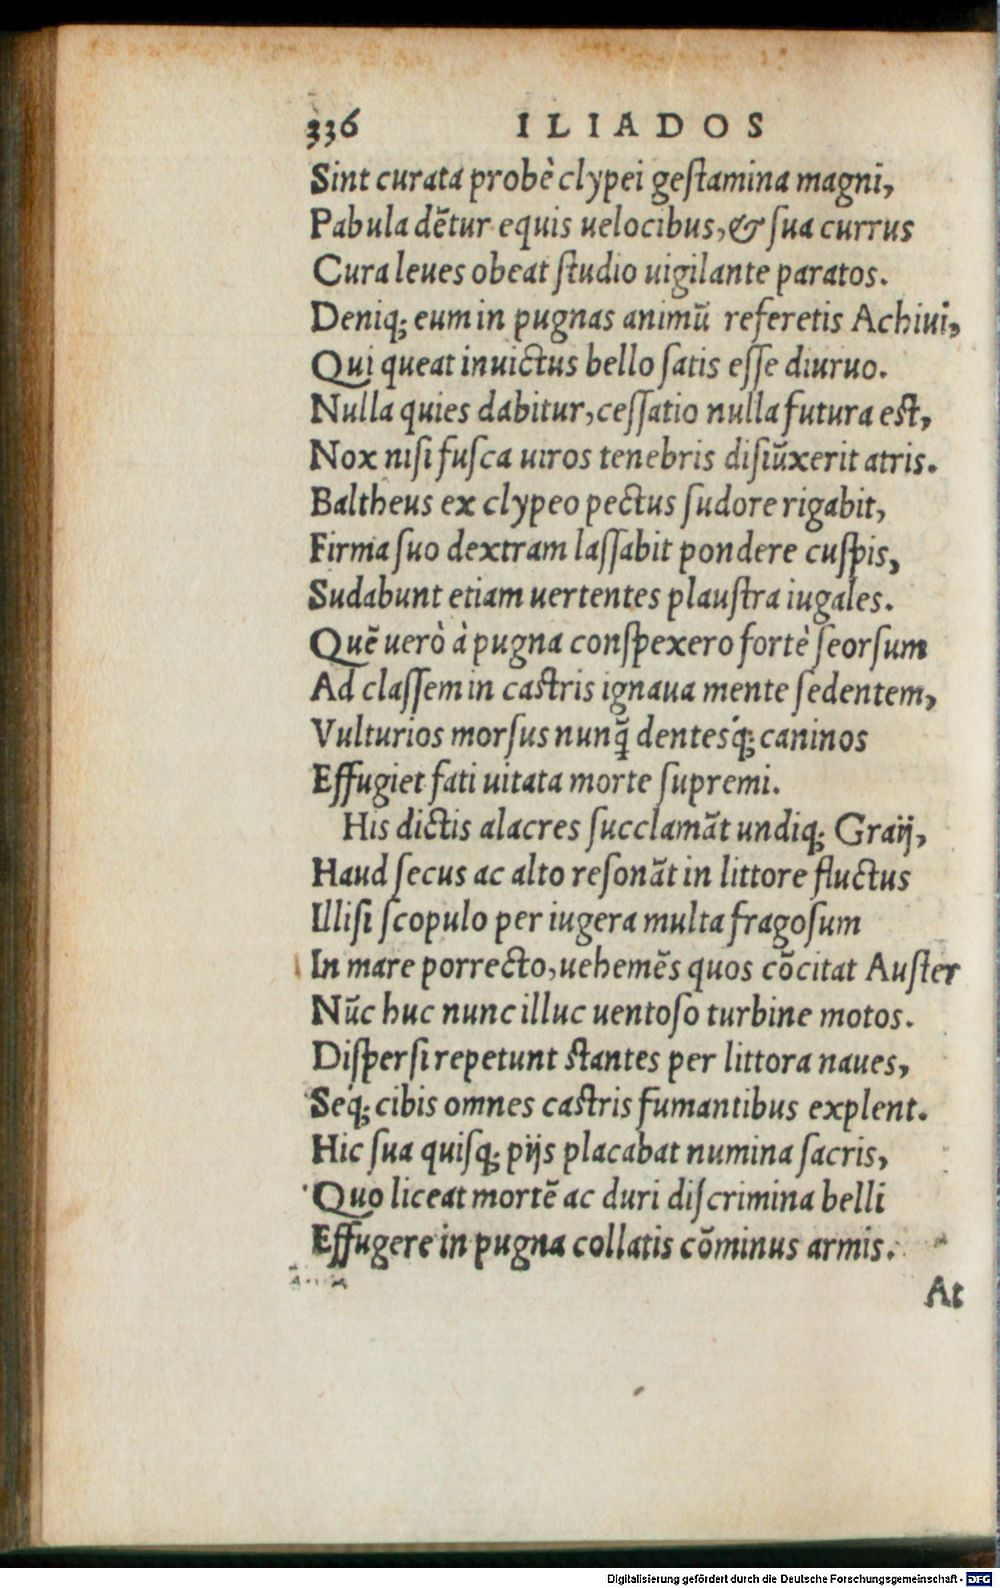 336 ILIADOS
Sint curata probè clypei geſtamina magni,
Pabula dẽtur equis uelocibus, & ſua currus
Cura leues obeat ſtudio uigilante paratos.
Deniq; eum in pugnas animũ referetis Achiui,
Qui queat inuictus bello ſatis eſſe diuruo.
Nulla quies dabitur, ceſſatio nulla futura eſt,
Nox niſi fuſca uiros tenebris diſiũxerit atris.
Baltheus ex clypeo pectus ſudore rigabit,
Firma ſuo dextram laſſabit pondere cuſpis,
Sudabunt etiam uertentes plauſtra iugales.
Quẽ uerò à pugna conſpexero fortè ſeorſum
Ad claſſem in caſtris ignaua mente ſedentem,
Vulturios morſus nunq̃ dentesq́; caninos
Effugiet fati uitata morte ſupremi.
His dictis alacres ſucclamãt undiq; Graij,
Haud ſecus ac alto reſonãt in littore fluctus
Illiſi ſcopulo per iugera multa fragoſum
In mare porrecto, uehemẽs quos cõcitat Auſter
Nũc huc nunc illuc uentoſo turbine motos.
Diſperſi repetunt ſtantes per littora naues,
Seq́; cibis omnes caſtris fumantibus explent.
Hic ſua quiſq; pijs placabat numina ſacris,
Quo liceat mortẽ ac duri diſcrimina belli
Effugere in pugna collatis cõminus armis.
At
Digitalisierung gefördert durch die Deutsche Forschungsgemeinschaft - DFG